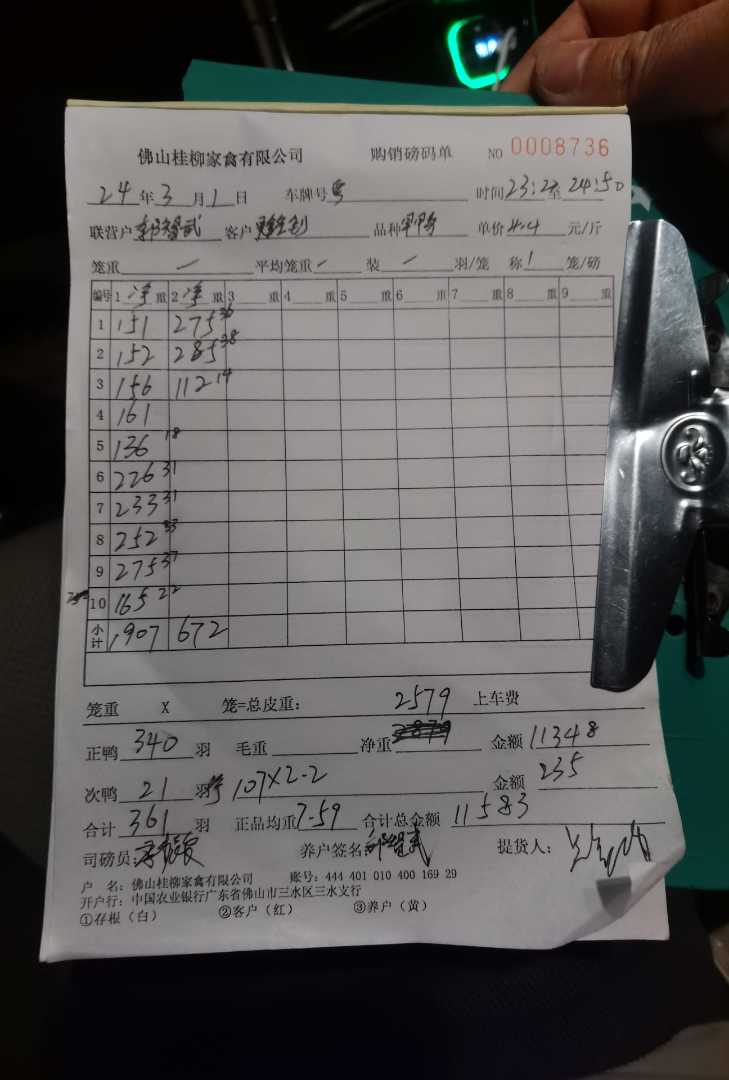 佛山桂柳家禽有限公司 购销磅码单 NO 0008736
24年3月1日 车牌号 时间23:22至24:50
联营户 客户 品种 单价4.4元/斤
笼重 — 平均笼重 — 装 — 羽/笼 称1笼/磅
编号 1净重 2净重 3重 4重 5重 6重 7重 8重 9重
1 151 275 36
2 152 285 38
3 156 112 14
4 161
5 136 18
6 226 31
7 233 31
8 252 33
9 275 37
10 165 22
小计 1907 672
笼重 X 笼=总皮重: 2579 上车费
正鸭340羽 毛重 净重 金额11348
次鸭21羽 107X2-2 金额235
合计361羽 正品均重7-59 合计总金额11583
司磅员: 养户签名: 提货人:
户 名: 佛山桂柳家禽有限公司 账号: 444 401 010 400 169 29
开户行: 中国农业银行广东省佛山市三水区三水支行
①存根(白) ②客户(红) ③养户(黄)